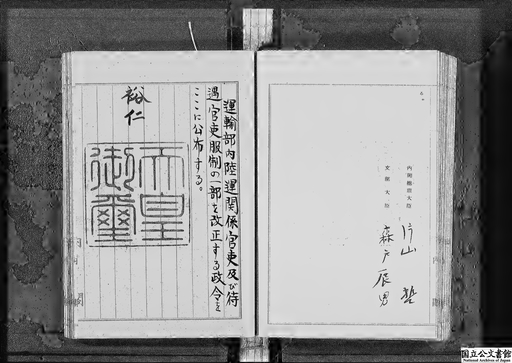 内閣總理大臣 片山 哲
文部大臣 森戸辰男
運輸部内陸運関係官吏及び待
遇官吏服制の一部を改正する政令を
ここに公布する。
裕仁
天皇
御璽
国立公文書館
National Archives of Japan